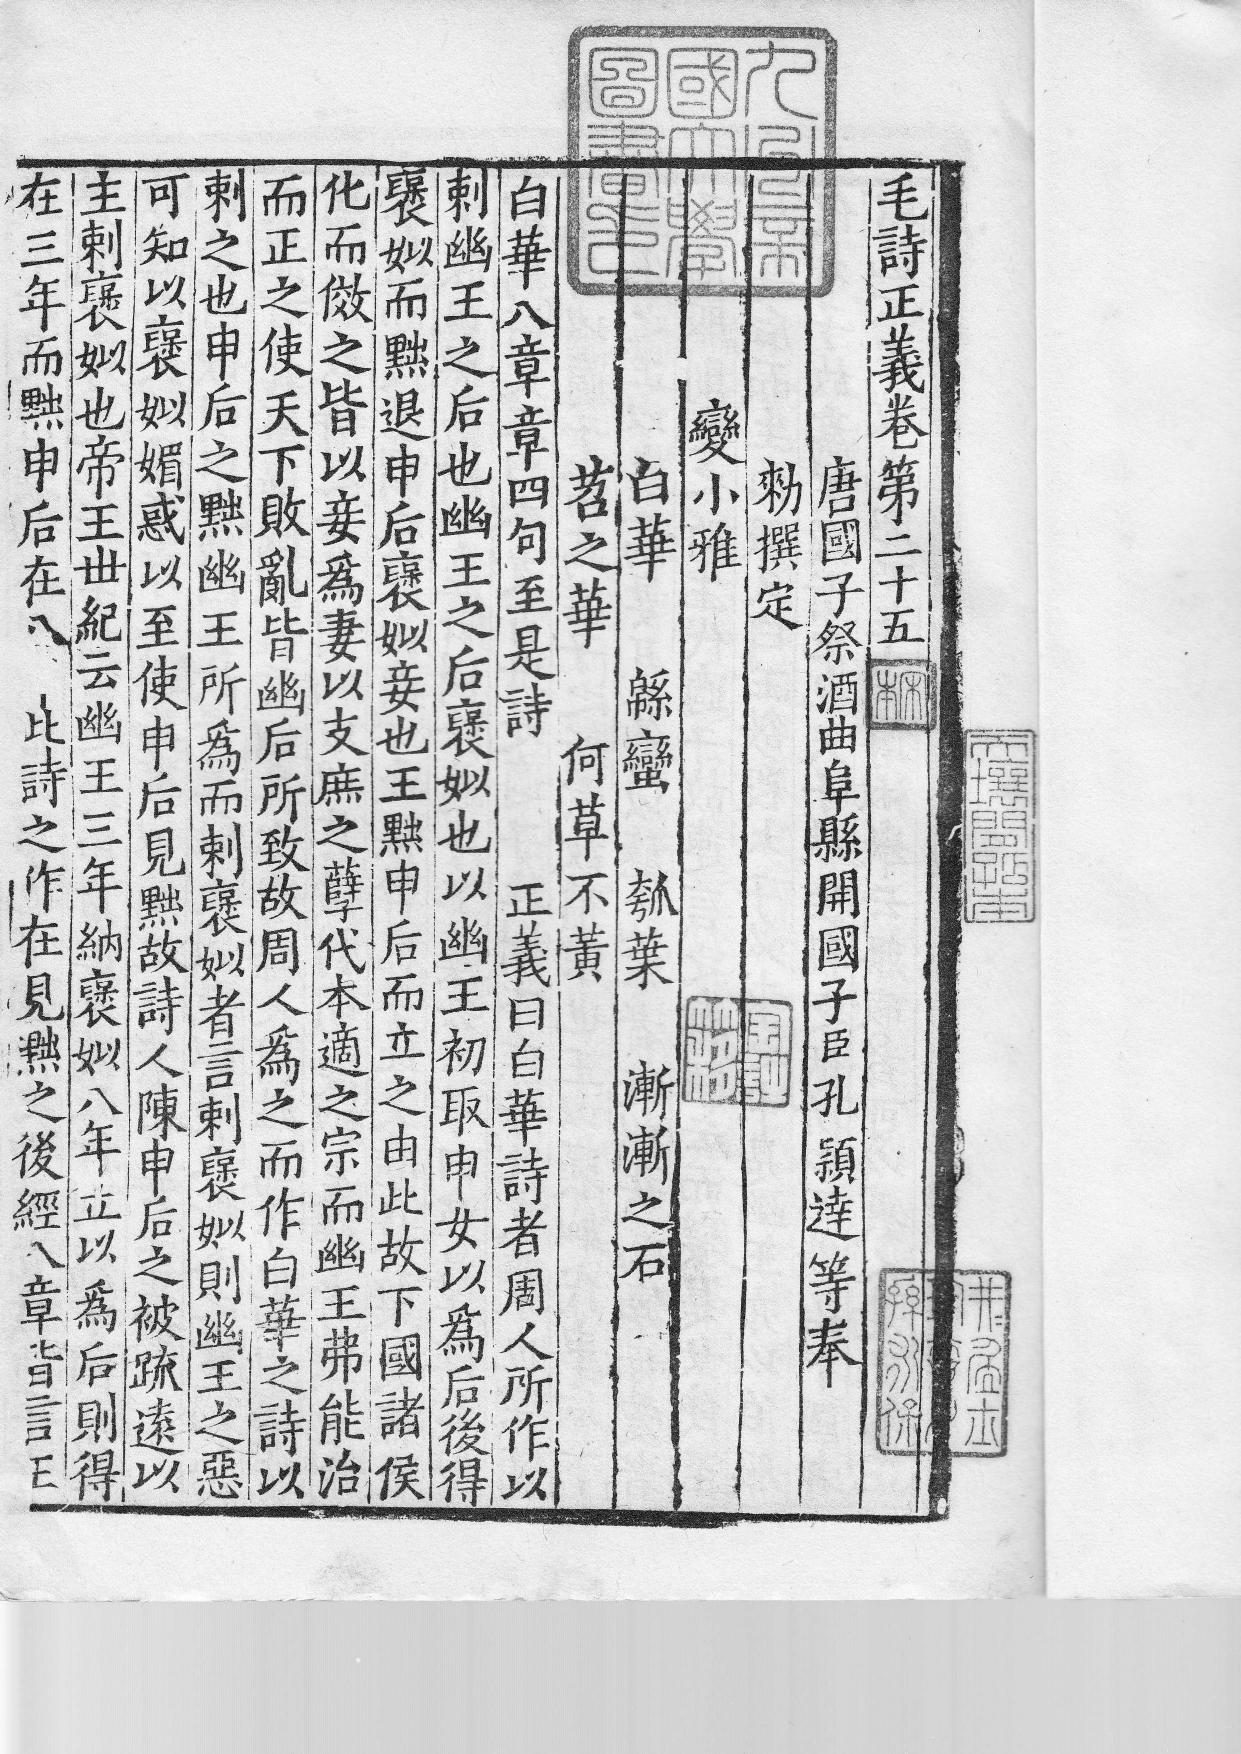 毛詩正義卷第二十五
唐國子祭酒曲阜縣開國子臣孔穎達等奉
勑撰定
變小雅
白華 緜蠻 瓠葉 漸漸之石
苕之華 何草不黃
白華八章章四句至是詩 正義曰白華詩者周人所作以
刺幽王之后也幽王之后褒姒也以幽王初取申女以爲后後得
褒姒而黜退申后褒姒妾也王黜申后而立之由此故下國諸侯
化而傚之皆以妾爲妻以支庶之孽代本適之宗而幽王弗能治
而正之使天下敗亂皆幽后所致故周人爲之而作白華之詩以
刺之也申后之黜幽王所爲而刺褒姒者言刺褒姒則幽王之惡
可知以褒姒媚惑以至使申后見黜故詩人陳申后之被疏遠以
主刺褒姒也帝王世紀云幽王三年納褒姒八年立以爲后則得
在三年而黜申后在八 此詩之作在見黜之後經八章皆言王
金澤文庫